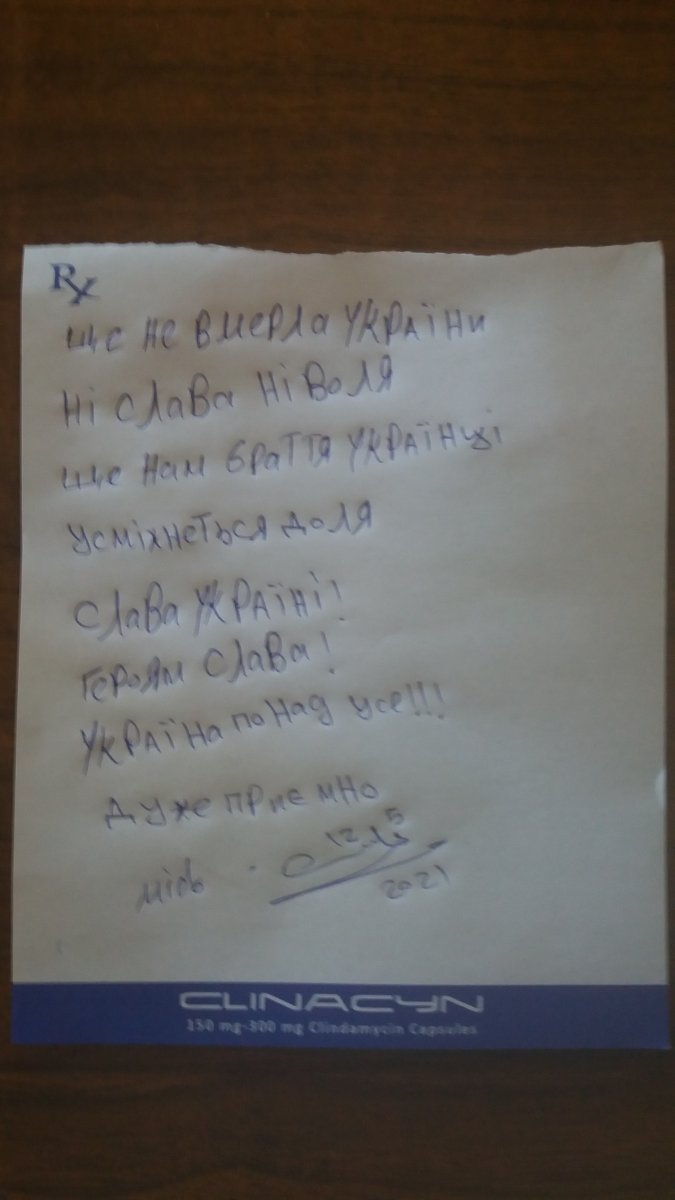 Rx
ще не вмерла УКРАЇНи
Ні слава Ні Воля
ще нам браття УКРАЇНці
усміхнеться доля
Слава УКРАЇНі!
Героям слава!
УКРАЇНа по Над усе!!!
дуже приємно
12 5
2021
CLINACYN
150 mg-300 mg Clindamycin Capsules